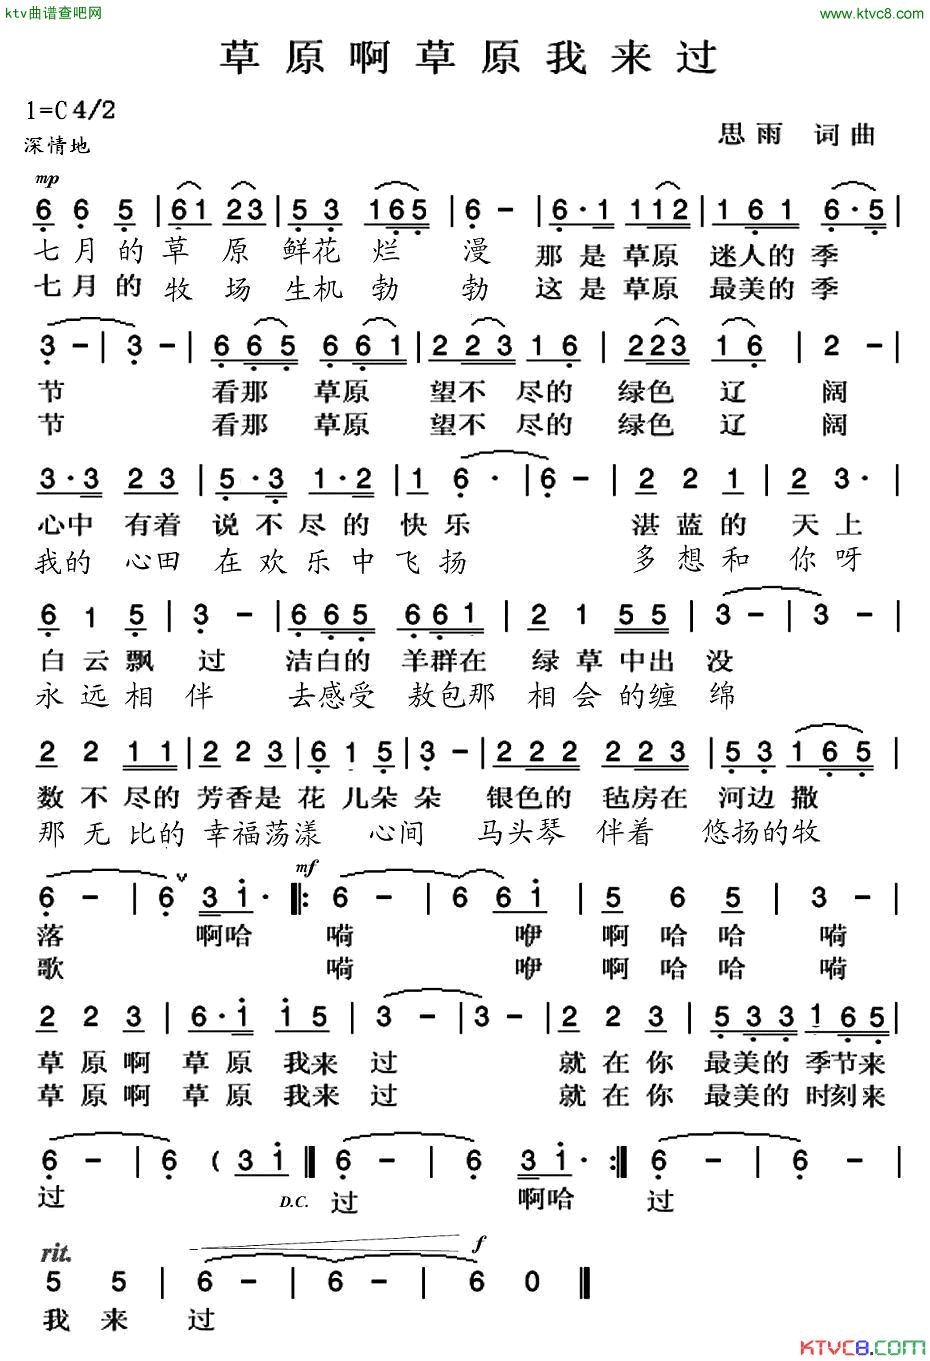 ktv曲谱查吧网 www.ktvc8.com
草原啊草原我来过
1=C 4/2
思雨 词曲
深情地
mp
6 6 5 | 6 1 2 3 | 5 3 1 6 5 | 6 - | 6 · 1 1 1 2 | 1 6 1 6 · 5 |
七月的草原鲜花烂漫那是草原迷人的季
七月的牧场生机勃勃这是草原最美的季
3 - | 3 - | 6 6 5 6 6 1 | 2 2 3 1 6 | 2 2 3 1 6 | 2 - |
节看那草原望不尽的绿色辽阔
节看那草原望不尽的绿色辽阔
3 · 3 2 3 | 5 · 3 1 · 2 | 1 6 · | 6 · | 2 2 1 | 2 3 · |
心中有着说不尽的快乐湛蓝的天上
我的心田在欢乐中飞扬多想和你呀
6 1 5 | 3 - | 6 6 5 6 6 1 | 2 1 5 5 | 3 - | 3 · |
白云飘过洁白的羊群在绿草中出没
永远相伴去感受敖包那相会的缠绵
2 2 1 1 | 2 2 3 | 6 1 5 | 3 - | 2 2 2 2 2 3 | 5 3 1 6 5 |
数不尽的芳香是花儿朵朵银色的毡房在河边撒
那无比的幸福荡漾心间马头琴伴着悠扬的牧
mf
6 - | 6 ∨ 3 1 · ‖: 6 - | 6 6 1 | 5 6 5 | 3 - |
落啊哈嗬咿啊哈哈嗬
歌嗬咿啊哈哈嗬
2 2 3 | 6 · 1 1 5 | 3 - | 3 - | 2 2 3 | 5 3 3 1 6 5 |
草原啊草原我来过就在你最美的季节来
草原啊草原我来过就在你最美的时刻来
6 - | 6 ( 3 1 ‖ 6 - | 6 3 1 · :‖ 6 - | 6 - |
过 D.C. 过啊哈过
rit. f
5 5 | 6 - | 6 - | 6 0 ‖
我来过
KTVC8.COM